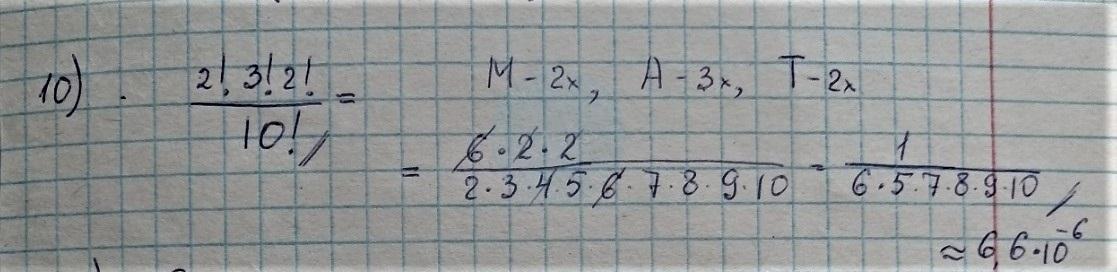 10) . 2! 3! 2! / 10! = М - 2х, А - 3х, Т - 2х
= 6 · 2 · 2 / 2 · 3 · 4 · 5 · 6 · 7 · 8 · 9 · 10 = 1 / 6 · 5 · 7 · 8 · 9 · 10
≈ 6,6 · 10^-6